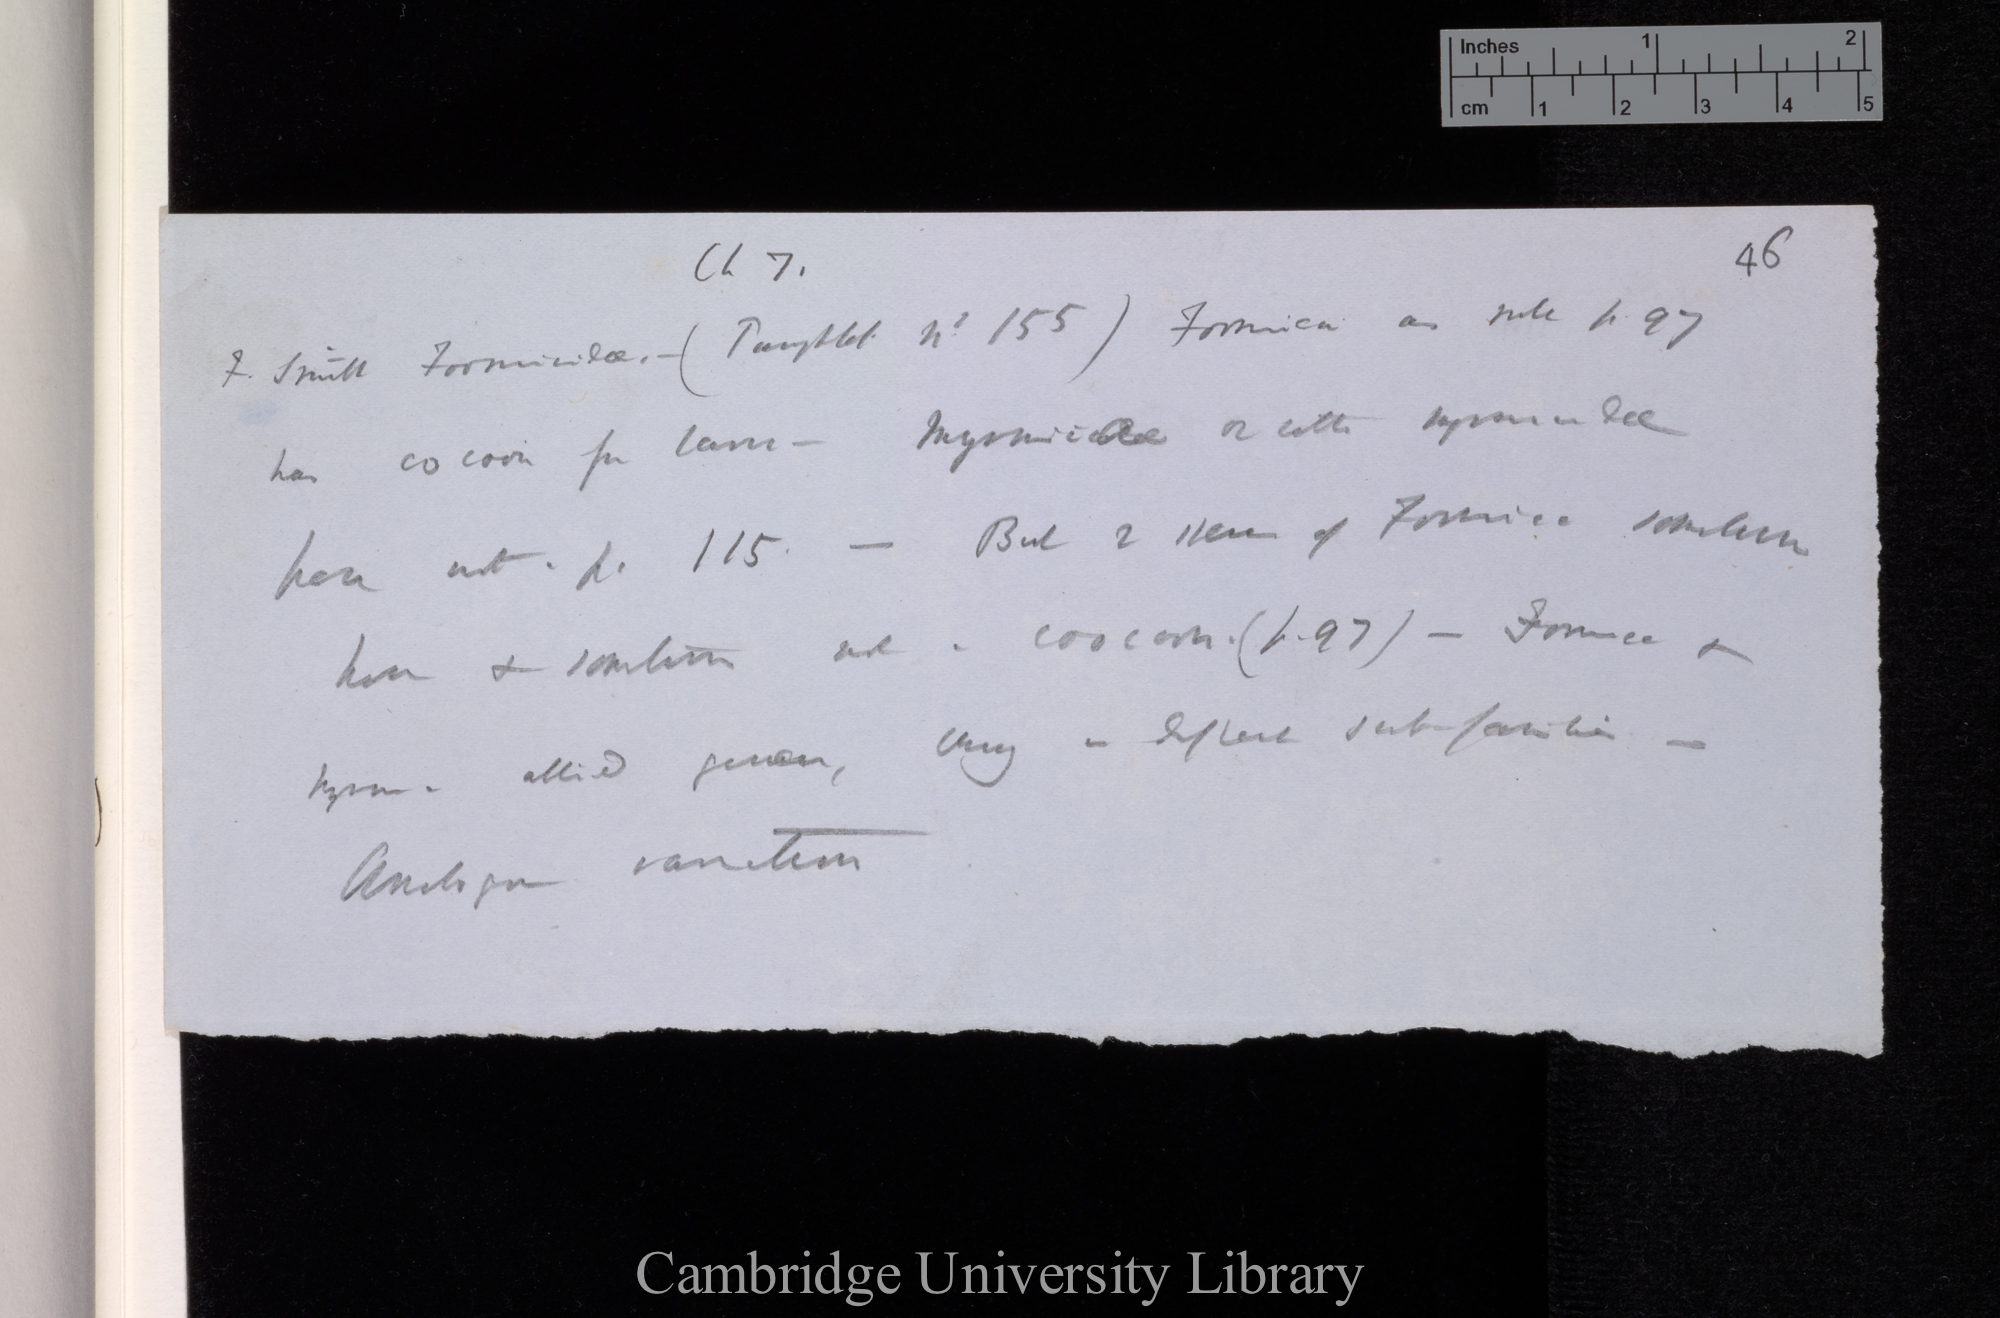 Inches 1 2
cm 1 2 3 4 5
Ch 7.
46
F. Smith Formicidæ.—(Pamphlet No 155) Formica as rule p. 97
has cocoon for larva — Myrmica or rather myrmicidæ
have not. p. 115. — But 2 of Formica sometimes
have & sometimes not. coocoon. (p. 97) — Formica &
Myrm. allied genera, being in different sub-families —
Analogous variation
Cambridge University Library